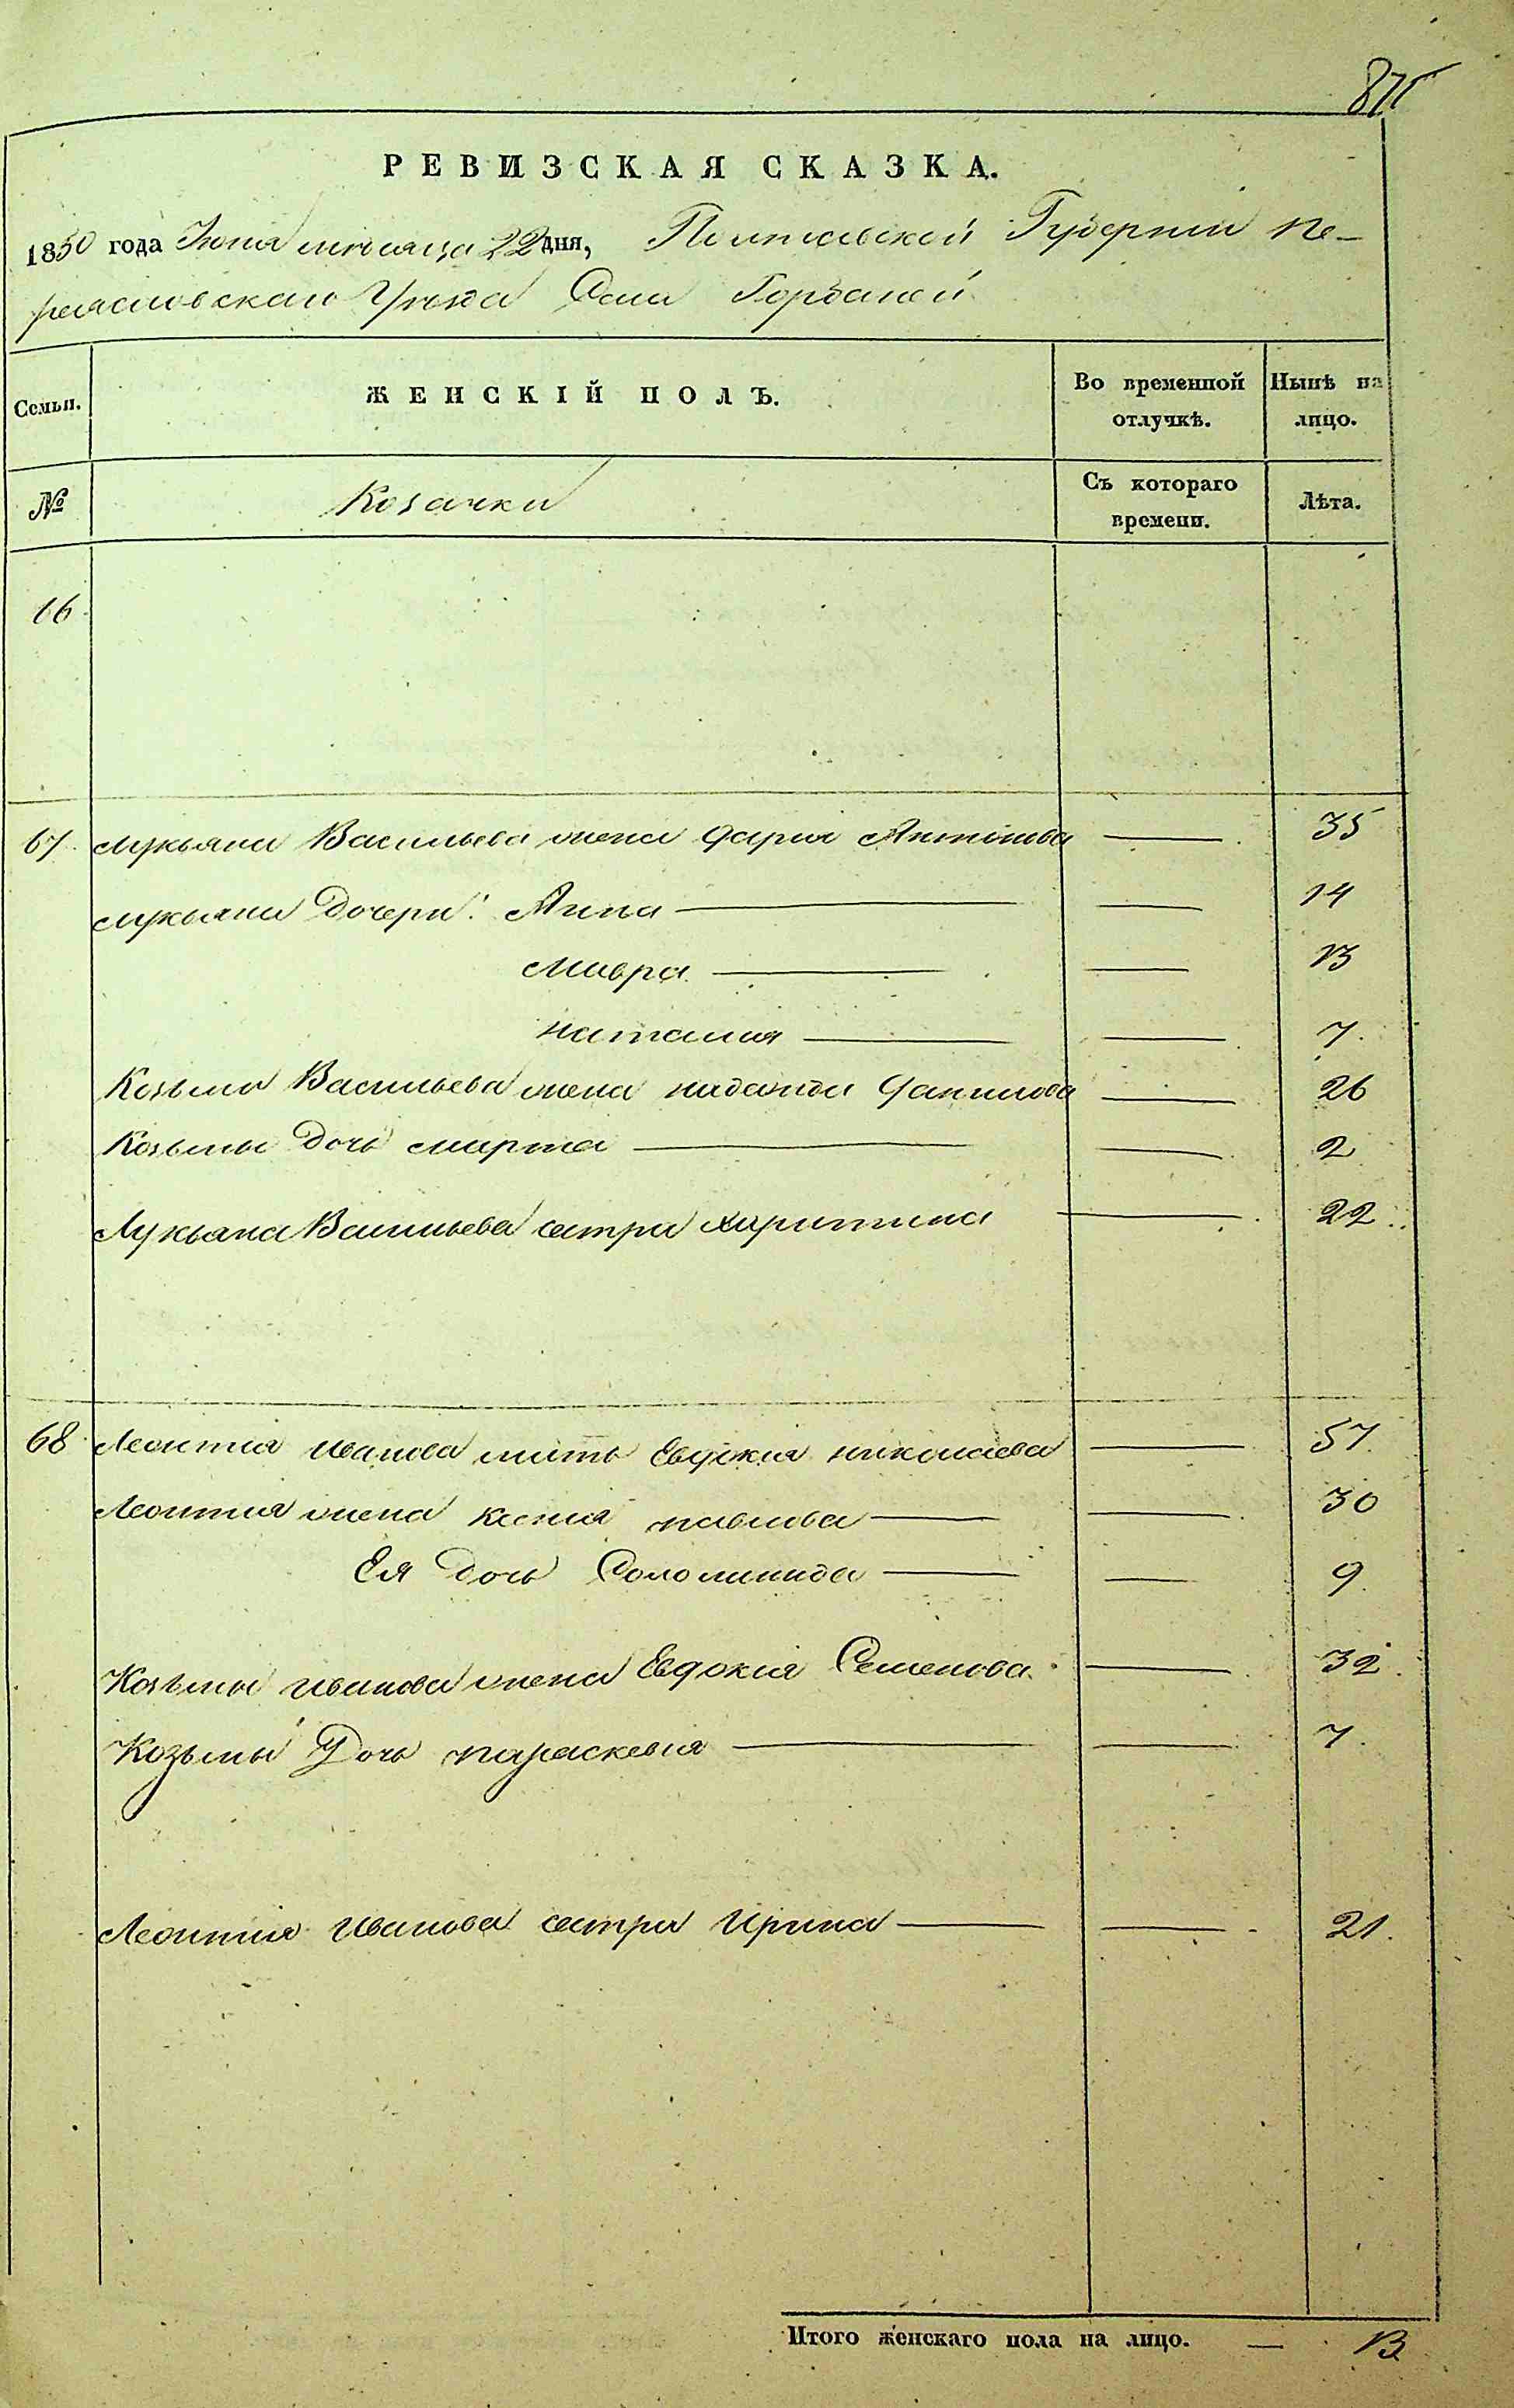 875
РЕВИЗСКАЯ СКАЗКА.
1850 года Июня месяца 22 дня, Полтавской Губернии Пе-
реяславскаго Уезда Села Горбаней
Семьи. ЖЕНСКІЙ ПОЛЪ. Во временной отлучкѣ. Нынѣ на лицо.
№ Козачки Съ котораго времени. Лѣта.
66
67. Лукьяна Васильева жена Дарія Антонова — 35
Лукьяна Дочери: Анна — 14
Мавра — 13
Наталия — 7.
Козьмы Васильева жена Данилова — 26
Козьмы Дочь Марта — 2
Лукьяна Васильева сестра Харитина — 22.
68 Леонтія Иванова мать Евдокія Николаева — 57.
Леонтия жена Ксенія Павлова — 30
Ея Дочь Соломанида — 9.
Козьмы Иванова жена Евдокія Семенова. — 32.
Козьмы Дочь Параскевія — 7.
Леонтия Иванова сестра Ирина — 21.
Итого женскаго пола на лицо. — 13